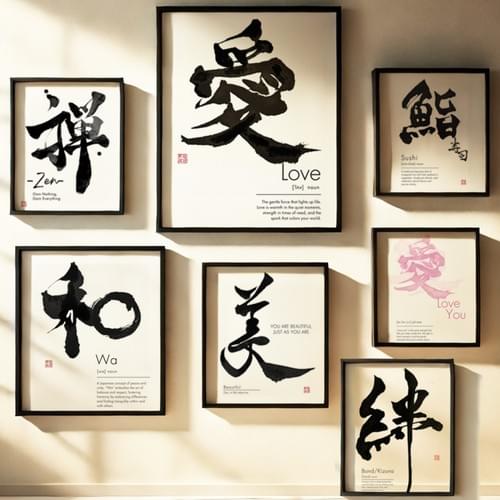 禅
-Zen-
Own Nothing,
Gain Everything.
愛
Love
[lʌv] noun
The gentle force that lights up life.
Love is warmth in the quiet moments,
strength in times of need, and the
spark that colors your world.
鮨
寿司
Sushi
和
Wa
[wa] noun
A Japanese concept of peace and
unity. "Wa" embodies the art of
balance and respect, fostering
harmony by embracing differences
and finding tranquility within and
with others.
美
YOU ARE BEAUTIFUL
JUST AS YOU ARE.
Beautiful
愛
Love
You
絆
Bond/Kizuna